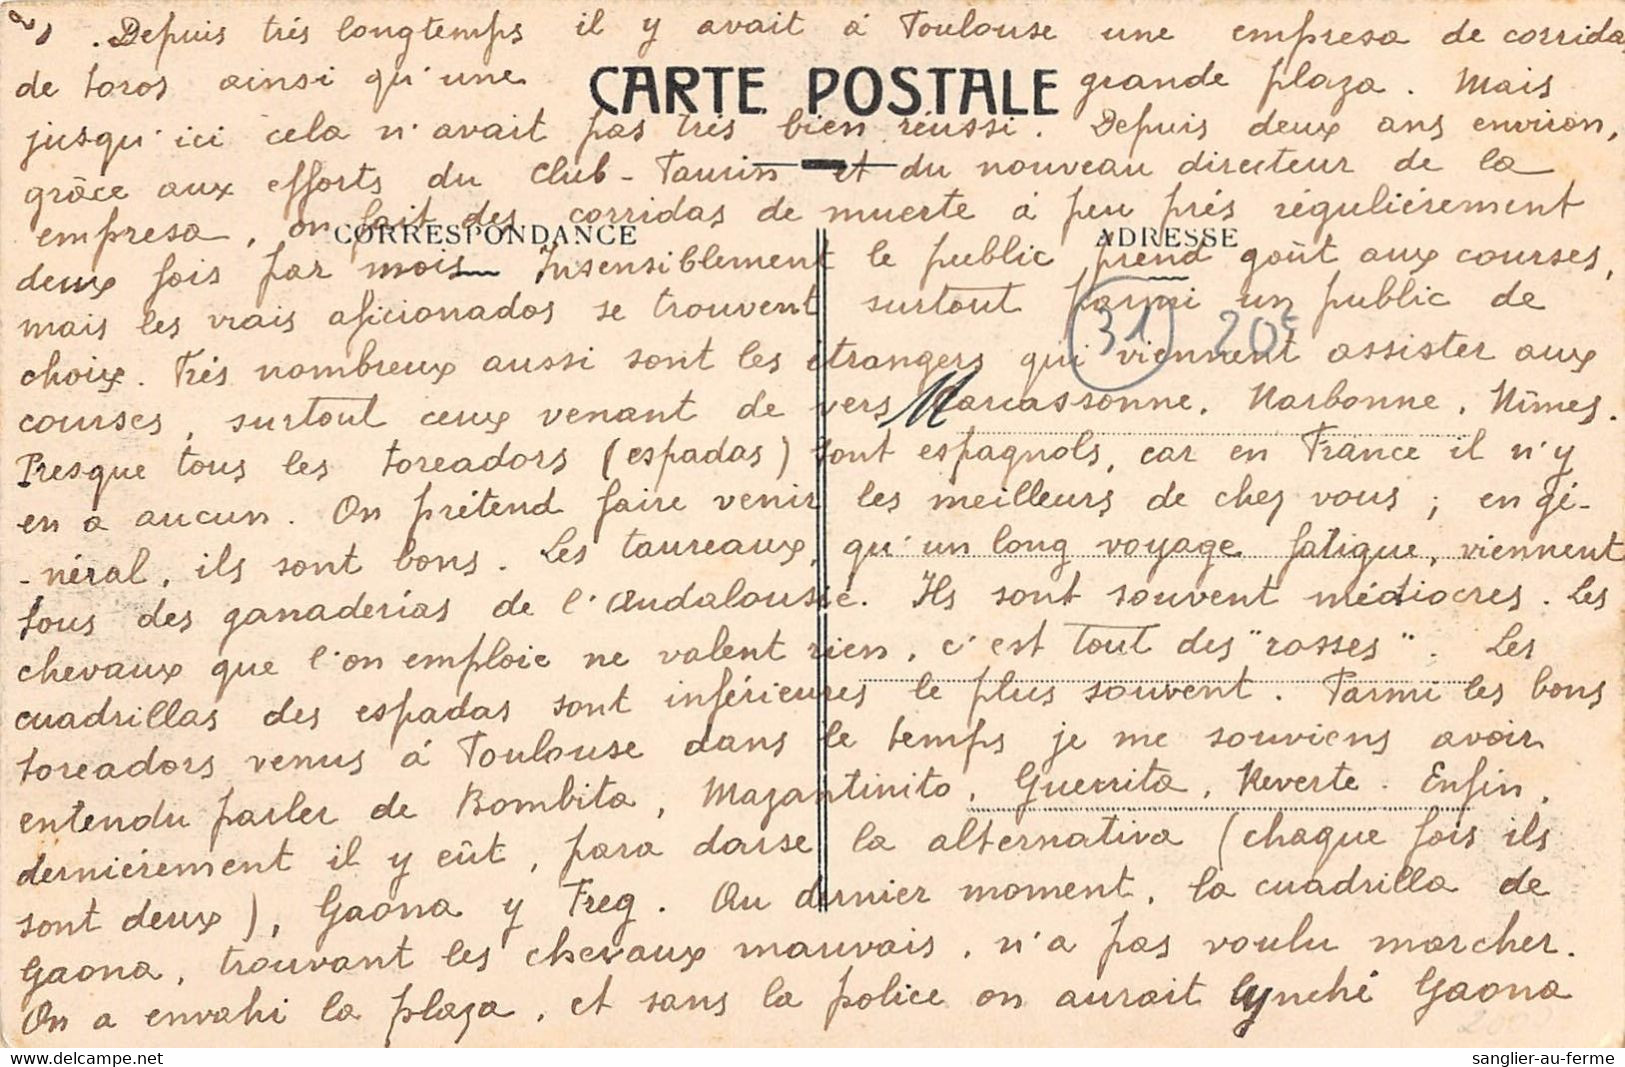 2) . Depuis très longtemps il y avait à Toulouse une empresa de corridas
de toros ainsi qu'une grande plaza. Mais
CARTE POSTALE
jusqu'ici cela n'avait pas très bien réussi. Depuis deux ans environ,
grâce aux efforts du Club-Taurin et du nouveau directeur de la
empresa, on fait des corridas de muerte à peu près régulièrement
CORRESPONDANCE
ADRESSE
deux fois par mois. Insensiblement le public prend goût aux courses,
mais les vrais aficionados se trouvent surtout parmi un public de
31 20€
choix. Très nombreux aussi sont les étrangers qui viennent assister aux
courses, surtout ceux venant de vers Carcassonne, Narbonne, Nîmes.
M
Presque tous les toreadors (espadas) sont espagnols, car en France il n'y
en a aucun. On prétend faire venir les meilleurs de chez vous ; en gé-
-néral, ils sont bons. Les taureaux, qu'un long voyage fatigue, viennent
tous des ganaderias de l'Andalousie. Ils sont souvent médiocres. Les
chevaux que l'on emploie ne valent rien, c'est tout des "rosses". Les
cuadrillas des espadas sont inférieures le plus souvent. Parmi les bons
toreadors venus à Toulouse dans le temps je me souviens avoir
entendu parler de Bombita, Mazantinito, Guerrita, Reverte. Enfin,
dernièrement il y eût, para darse la alternativa (chaque fois ils
sont deux), Gaona y Freg. Au dernier moment, la cuadrilla de
Gaona, trouvant les chevaux mauvais, n'a pas voulu marcher.
On a envahi la plaza, et sans la police on aurait lynché Gaona
sanglier-au-ferme